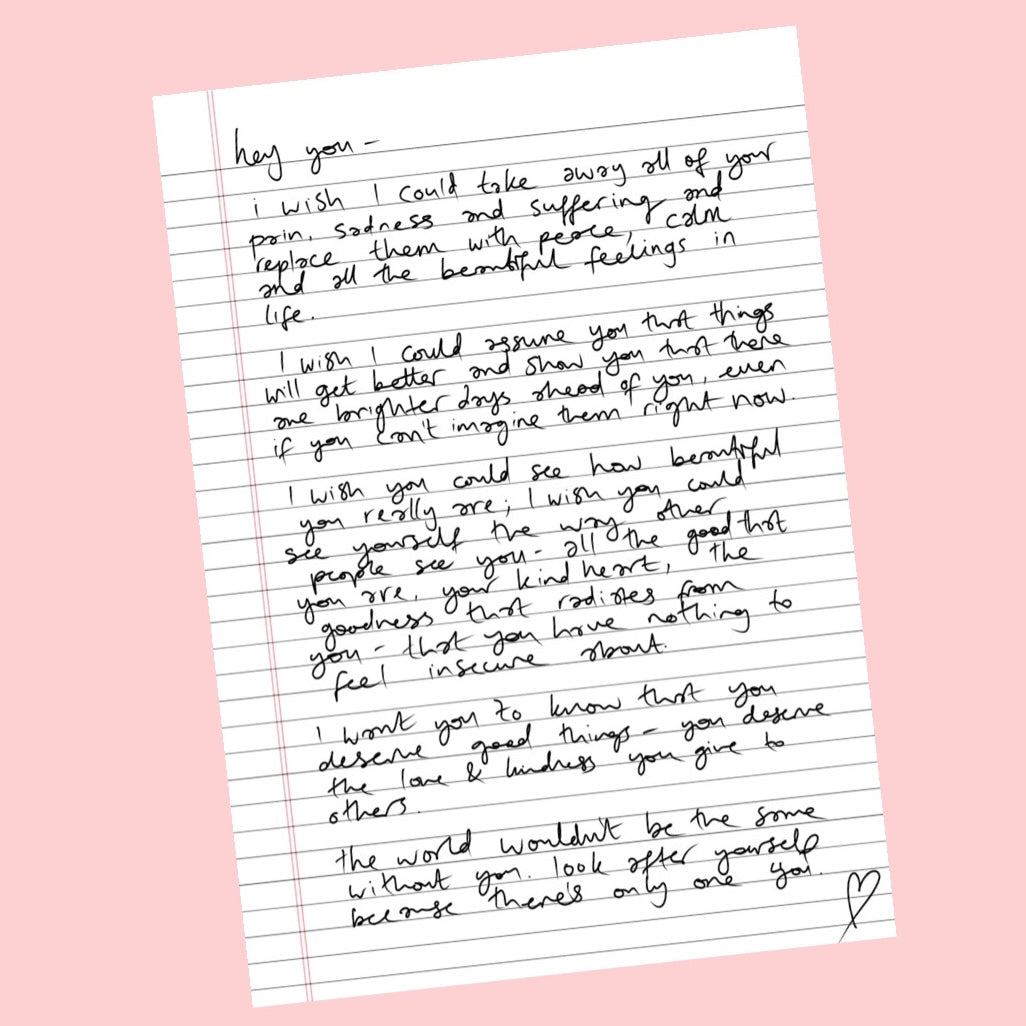 hey you -
i wish I could take away all of your
pain, sadness and suffering and
replace them with peace, calm
and all the beautiful feelings in
life.
I wish I could assure you that things
will get better and show you that there
are brighter days ahead of you, even
if you can't imagine them right now.
I wish you could see how beautiful
you really are; I wish you could
see yourself the way other
people see you - all the good that
you are, your kind heart, the
goodness that radiates from
you - that you have nothing to
feel insecure about.
I want you to know that you
deserve good things - you deserve
the love & kindness you give to
others.
the world wouldn't be the same
without you. look after yourself
because there's only one you.